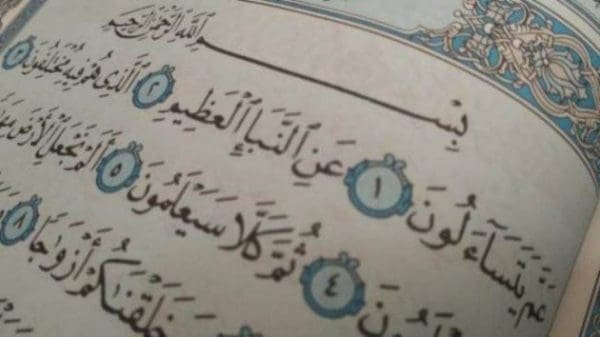 بِسْمِ ٱللَّهِ ٱلرَّحْمَٰنِ ٱلرَّحِيمِ
عَمَّ يَتَسَآءَلُونَ ١ عَنِ ٱلنَّبَإِ ٱلْعَظِيمِ ٢ ٱلَّذِى هُمْ فِيهِ مُخْتَلِفُونَ ٣
ٱلَمُونَ ٤ ثُمَّ كَلَّا سَيَعْلَمُونَ ٥ أَلَمْ نَجْعَلِ ٱلْأَرْضَ
خَلَقْنَٰكُمْ أَزْوَٰجًا ٨